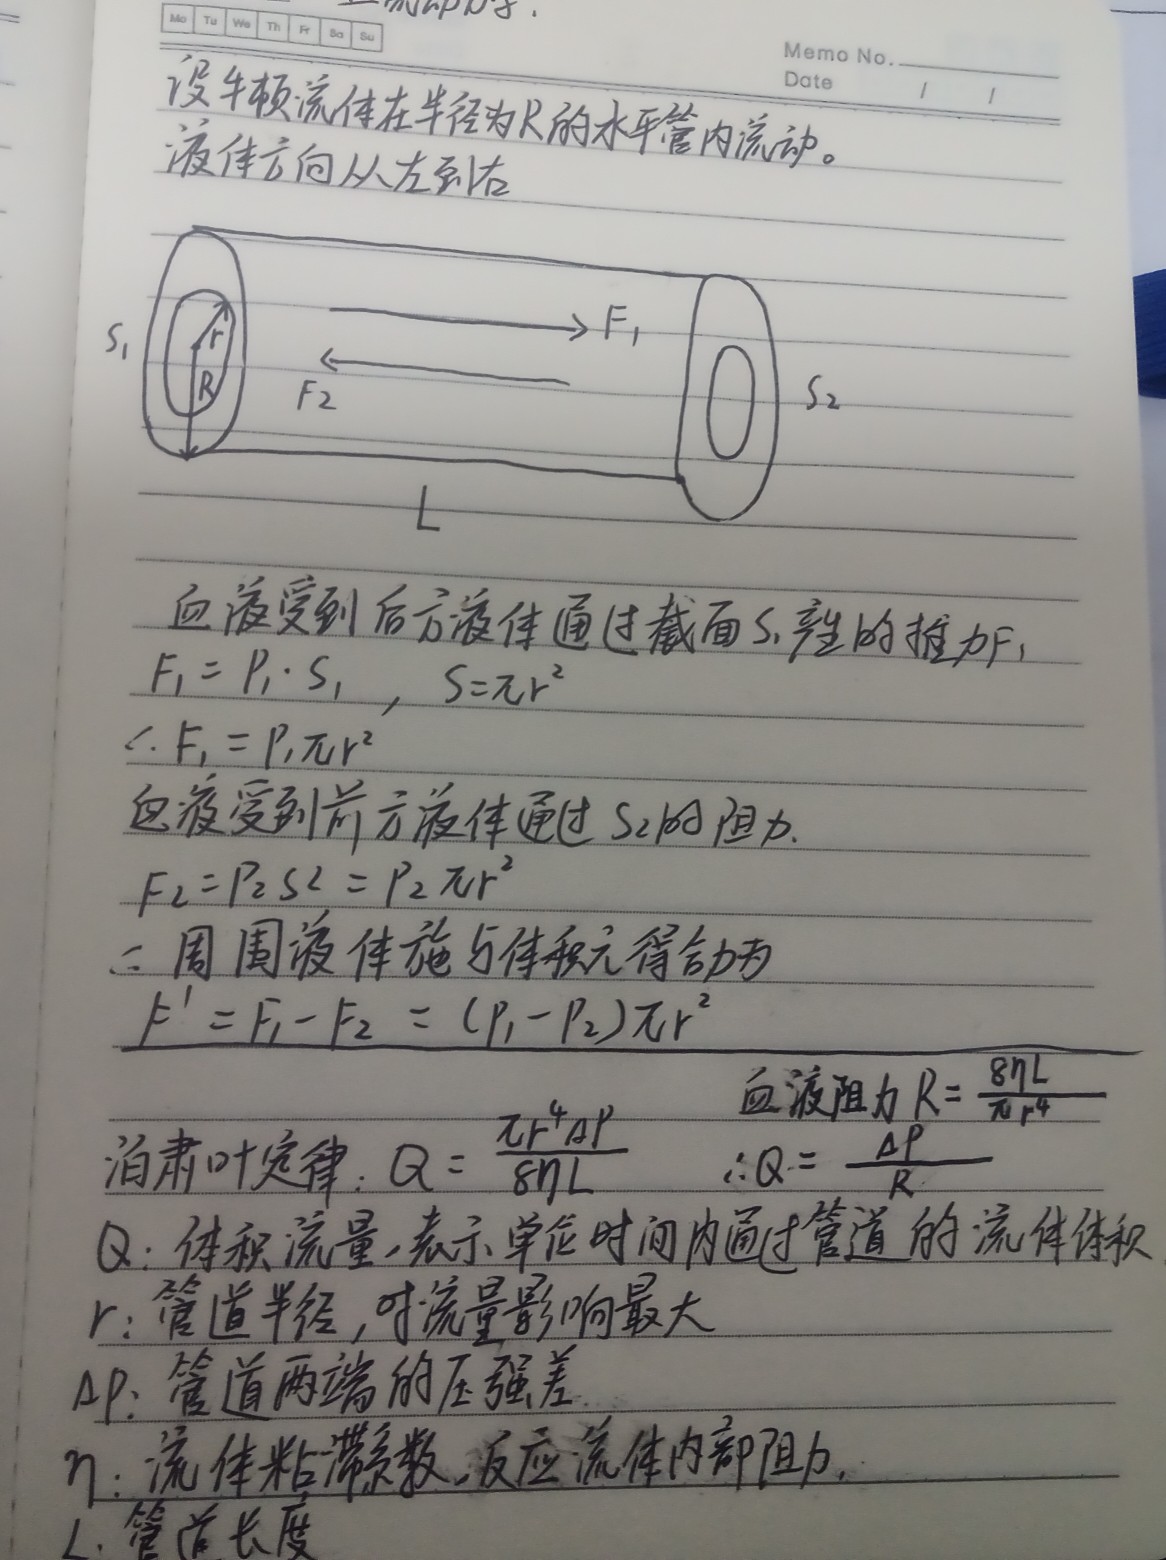 Mo Tu We Th Fr Sa Su
Memo No.
Date / /
设牛顿流体在半径为R的水平管内流动。
液体方向从左到右
S₁ r R F₁ F₂ S₂
L
血液受到后方液体通过截面S₁产生的推力F₁
F₁ = P₁·S₁ , S=πr²
∴ F₁ = P₁πr²
血液受到前方液体通过S₂的阻力.
F₂ = P₂S₂ = P₂πr²
∴ 周围液体施与体积元得合力为
F' = F₁ - F₂ = (P₁-P₂)πr²
血液阻力 R = 8ηL/πr⁴
泊肃叶定律: Q = πr⁴ΔP/8ηL ∴Q = ΔP/R
Q: 体积流量,表示单位时间内通过管道的流体体积
r: 管道半径,对流量影响最大
ΔP: 管道两端的压强差.
η: 流体粘滞系数,反应流体内部阻力.
L: 管道长度